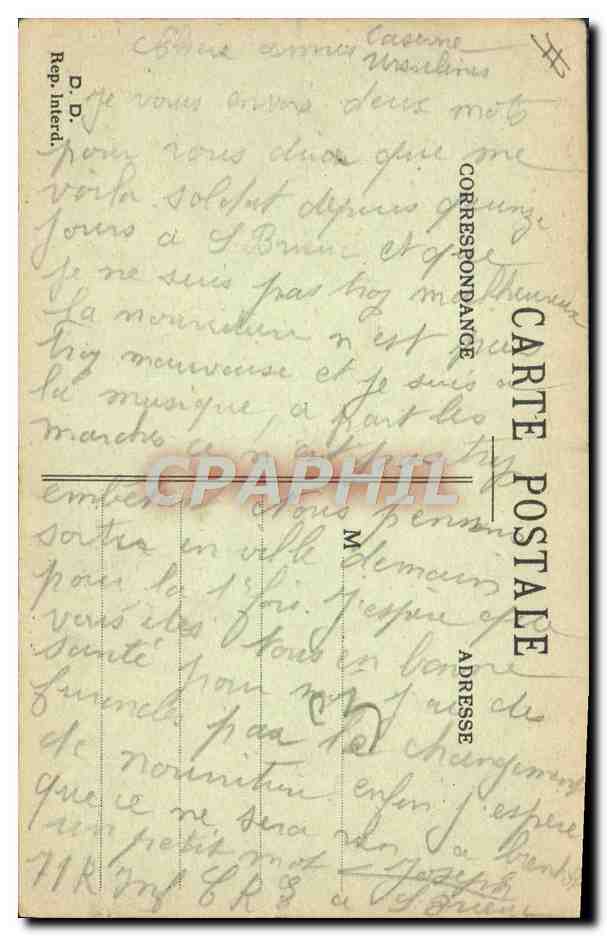 Chers amis Caserne
Ursulines
je vous envois deux mots
pour vous dire que me
voila soldat depuis quinze
jours a St Brieuc et que
je ne suis pas trop malheureux
la nourriture n est pas
trop mauvaise et je suis a
la musique, a part les
marches ce n est pas trop
Nous pensons
sortir en ville demain
pour la 1e fois. J'espère que
vous êtes tous en bonne
santé pour moi j'ai des
furoncles par le changement
de nourriture enfin j'espère
que ce ne sera rien a bientôt
un petit mot Joseph
71 R Inf C R E a St Brieuc
D. D.
Rep. Interd.
CARTE POSTALE
CORRESPONDANCE
ADRESSE
M
CPAPHIL